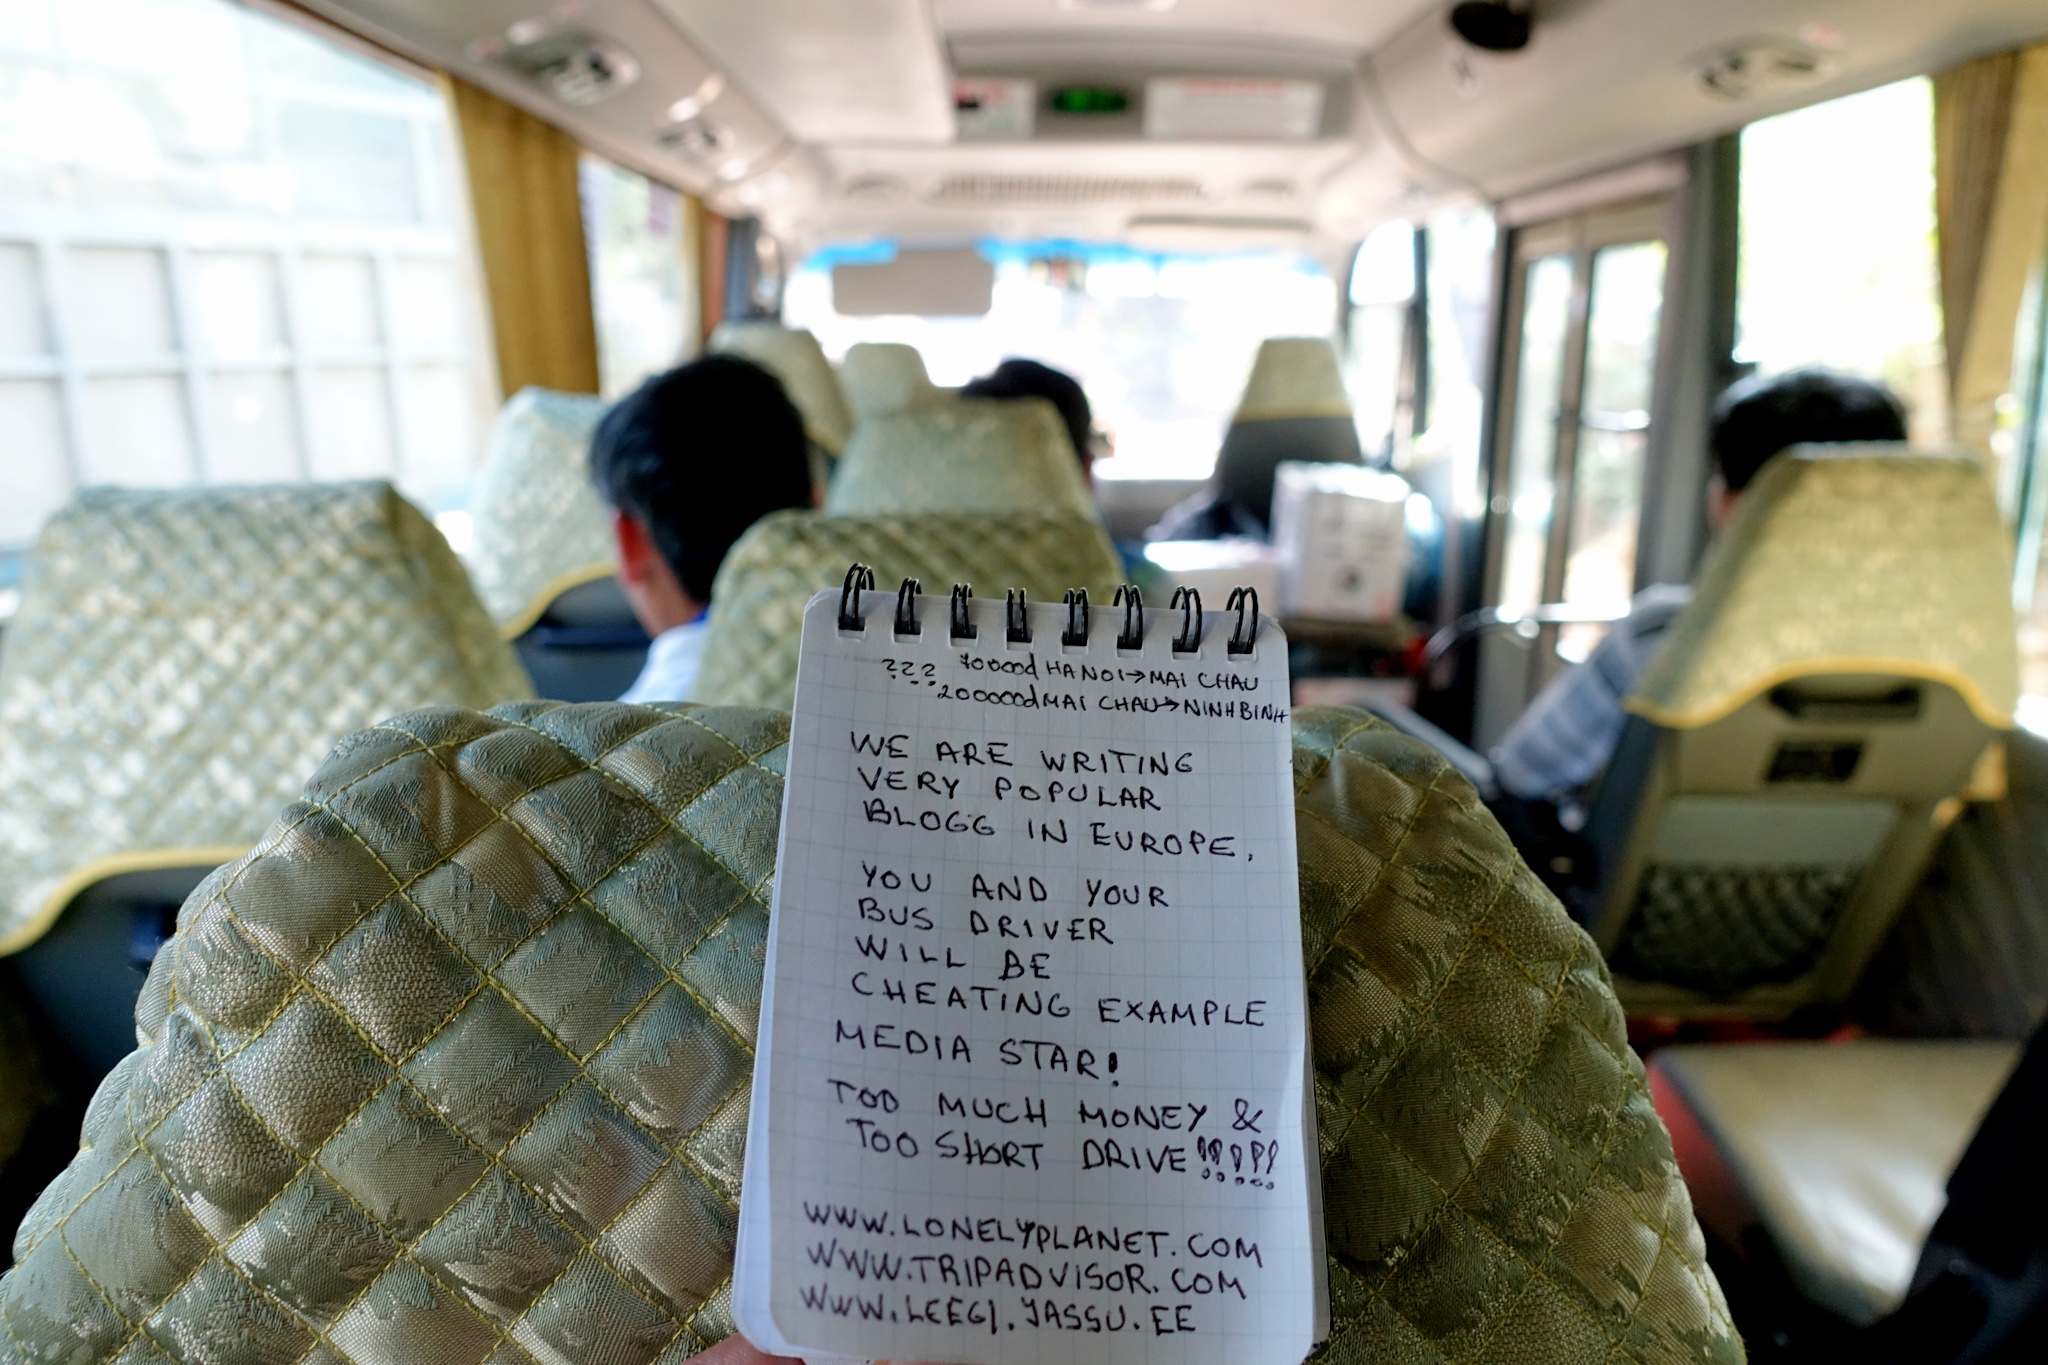 ??? 70000đ HANOI→MAI CHAU
200000đ MAI CHAU→NINH BINH
WE ARE WRITING
VERY POPULAR
BLOGG IN EUROPE.
YOU AND YOUR
BUS DRIVER
WILL BE
CHEATING EXAMPLE
MEDIA STAR!
TOO MUCH MONEY &
TOO SHORT DRIVE!!!!!
WWW.LONELYPLANET.COM
WWW.TRIPADVISOR.COM
WWW.LEEGI.JASSU.EE